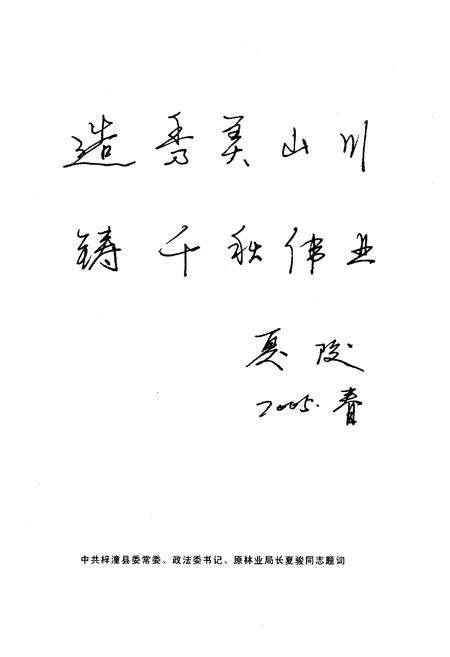 造秀美山川
铸千秋伟业
夏骏
2005.春
中共梓潼县委常委、政法委书记、原林业局长夏骏同志题词